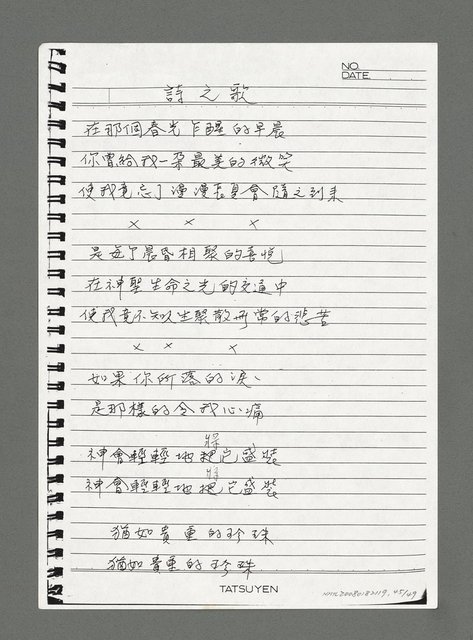 NO.
DATE
詩之歌
在那個春光乍醒的早晨
你曾給我一朵最美的微笑
使我竟忘了漫漫長夏會隨之到來
× × ×
是每個晨昏相聚的喜悅
在神聖生命之光的交通中
使我竟不知人生聚散無常的悲苦
× × ×
如果你所落的淚、
是那樣的令我心痛
將
神會輕輕地把它盛裝
將
神會輕輕地把它盛裝
猶如貴重的珍珠
猶如貴重的珍珠
TATSUYEN
45/49